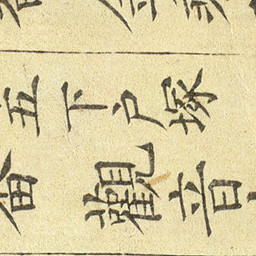 五番
下戸塚
觀音